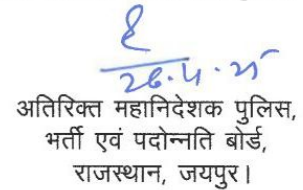 26.4.25
अतिरिक्त महानिदेशक पुलिस,
भर्ती एवं पदोन्नति बोर्ड,
राजस्थान, जयपुर।